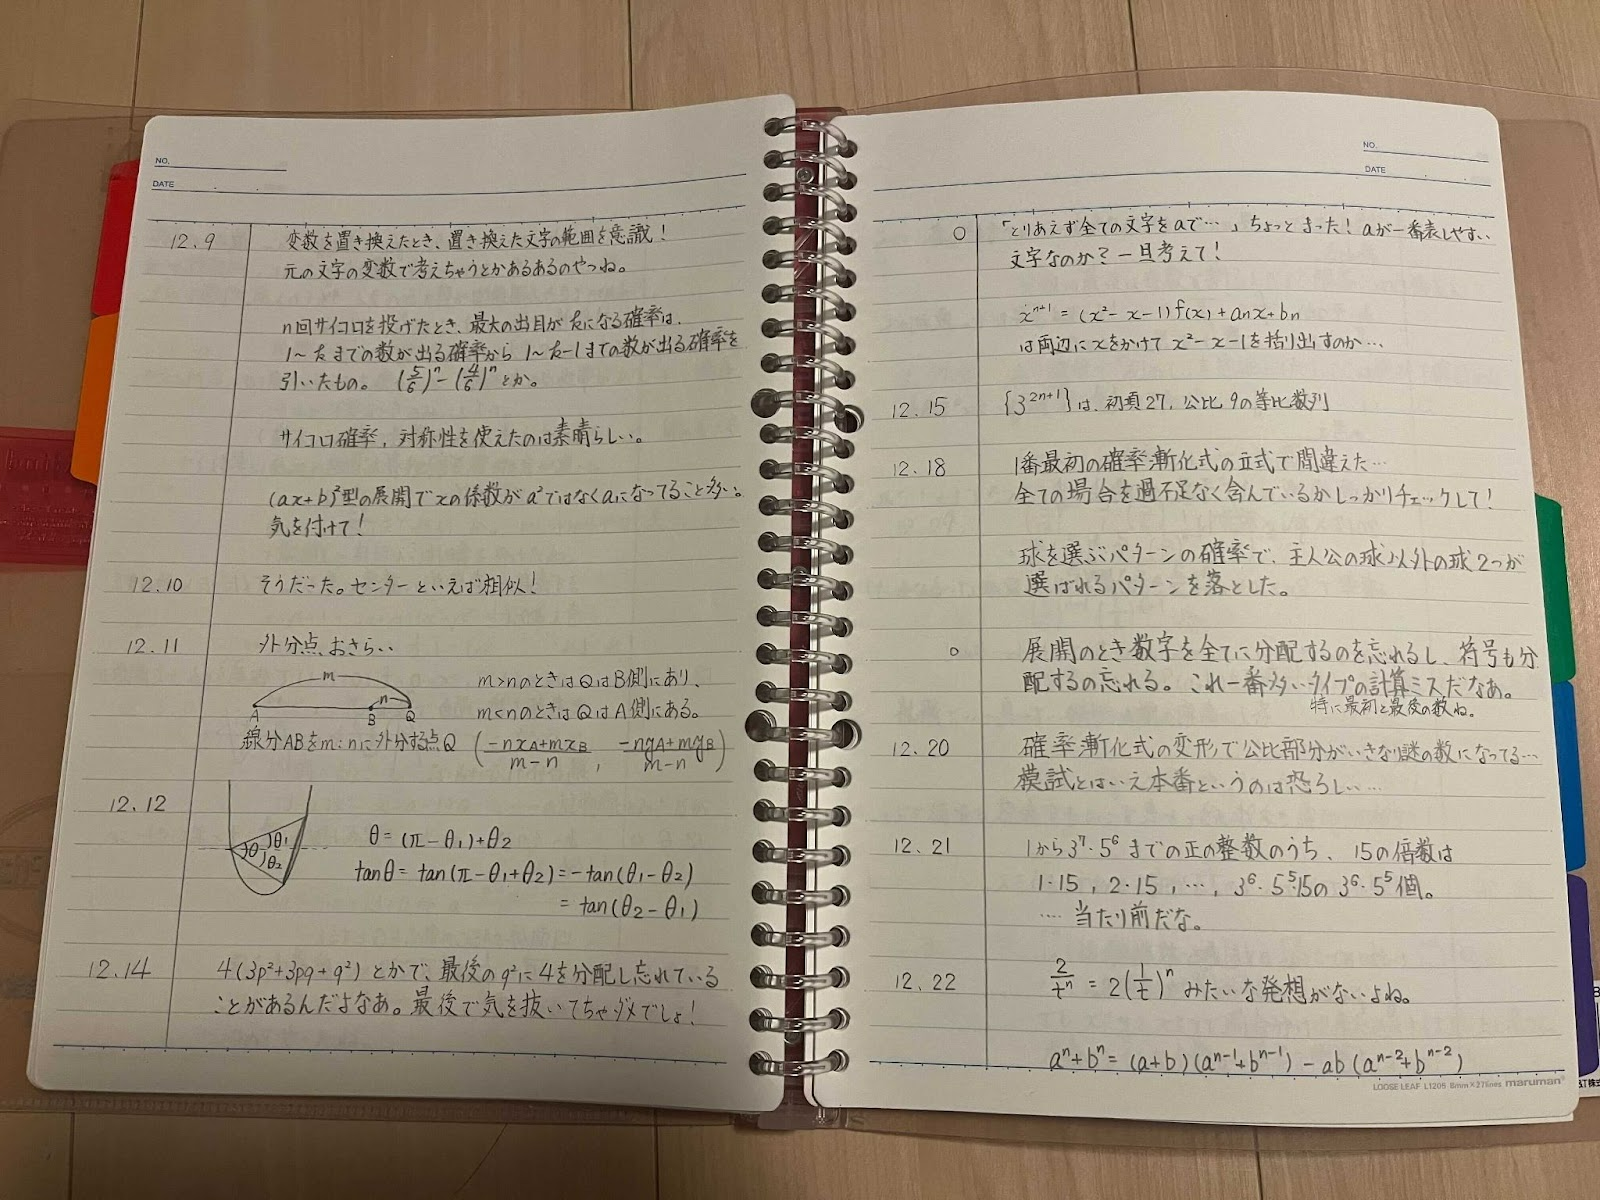 NO.
DATE
12.9 変数を置き換えたとき、置き換えた文字の範囲を意識！
元の文字の変数で考えちゃうとかあるあるのやつね。
n回サイコロを投げたとき、最大の出目がkになる確率は、
1～kまでの数が出る確率から 1～k-1までの数が出る確率を
引いたもの。 (5/6)^n - (4/6)^n とか。
サイコロ確率，対称性を使えたのは素晴らしい。
(ax+b)²型の展開でxの係数がa²ではなくaになってること多い。
気を付けて！
12.10 そうだった。センターといえば相似！
12.11 外分点おさらい
m
n
A B Q
m>nのときはQはB側にあり、
m<nのときはQはA側にある。
線分ABをm:nに外分する点Q ((-nxA+mxB)/(m-n) , (-nyA+myB)/(m-n))
12.12
θ θ1 θ2
θ = (π-θ1)+θ2
tanθ = tan(π-θ1+θ2) = -tan(θ1-θ2)
= tan(θ2-θ1)
12.14 4(3p²+3pq+q²) とかで、最後のq²に4を分配し忘れている
ことがあるんだよなあ。最後で気を抜いてちゃダメでしょ！
NO.
DATE
○ 「とりあえず全ての文字をaで…」ちょっとまった！aが一番表しやすい
文字なのか？一旦考えて！
x^{n+1} = (x²-x-1)f(x)+anx+bn
は両辺にxをかけて x²-x-1を括り出すのか…
12.15 {3^{2n+1}}は、初項27，公比9の等比数列
12.18 1番最初の確率漸化式の立式で間違えた…
全ての場合を過不足なく含んでいるかしっかりチェックして！
球を選ぶパターンの確率で、主人公の球以外の球2つが
選ばれるパターンを落とした。
○ 展開のとき数字を全てに分配するのを忘れるし、符号も分
配するの忘れる。これ一番多いタイプの計算ミスだなあ。
特に最初と最後の数ね。
12.20 確率漸化式の変形で公比部分がいきなり謎の数になってる…
模試とはいえ本番というのは恐ろしい…
12.21 1から3⁷·5⁶までの正の整数のうち、15の倍数は
1·15，2·15，…，3⁶·5⁵·15の 3⁶·5⁵個。
… 当たり前だな。
12.22 2/t^n = 2(1/t)^n みたいな発想がないよね。
a^n+b^n = (a+b)(a^{n-1}+b^{n-1}) - ab(a^{n-2}+b^{n-2})
LOOSE LEAF L1205 8mm×27lines maruman